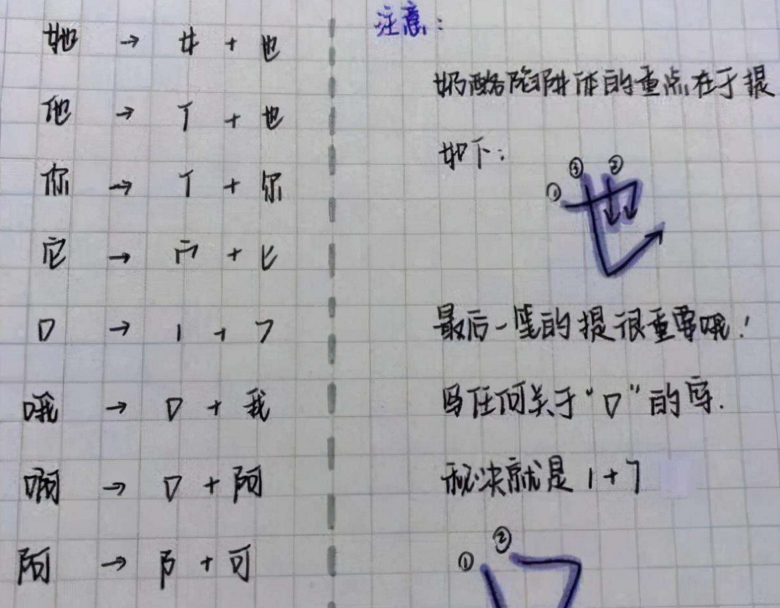 她 → 女 + 也
他 → 亻 + 也
你 → 亻 + 尔
它 → 宀 + 匕
口 → 1 + 7
哦 → 口 + 我
啊 → 口 + 阿
阿 → 阝 + 可
注意:
奶酪陷阱体的重点在于提
如下:
① ③ ②
也
最后一笔的提很重要哦!
写任何关于“口”的字.
秘决就是 1+7
① ②